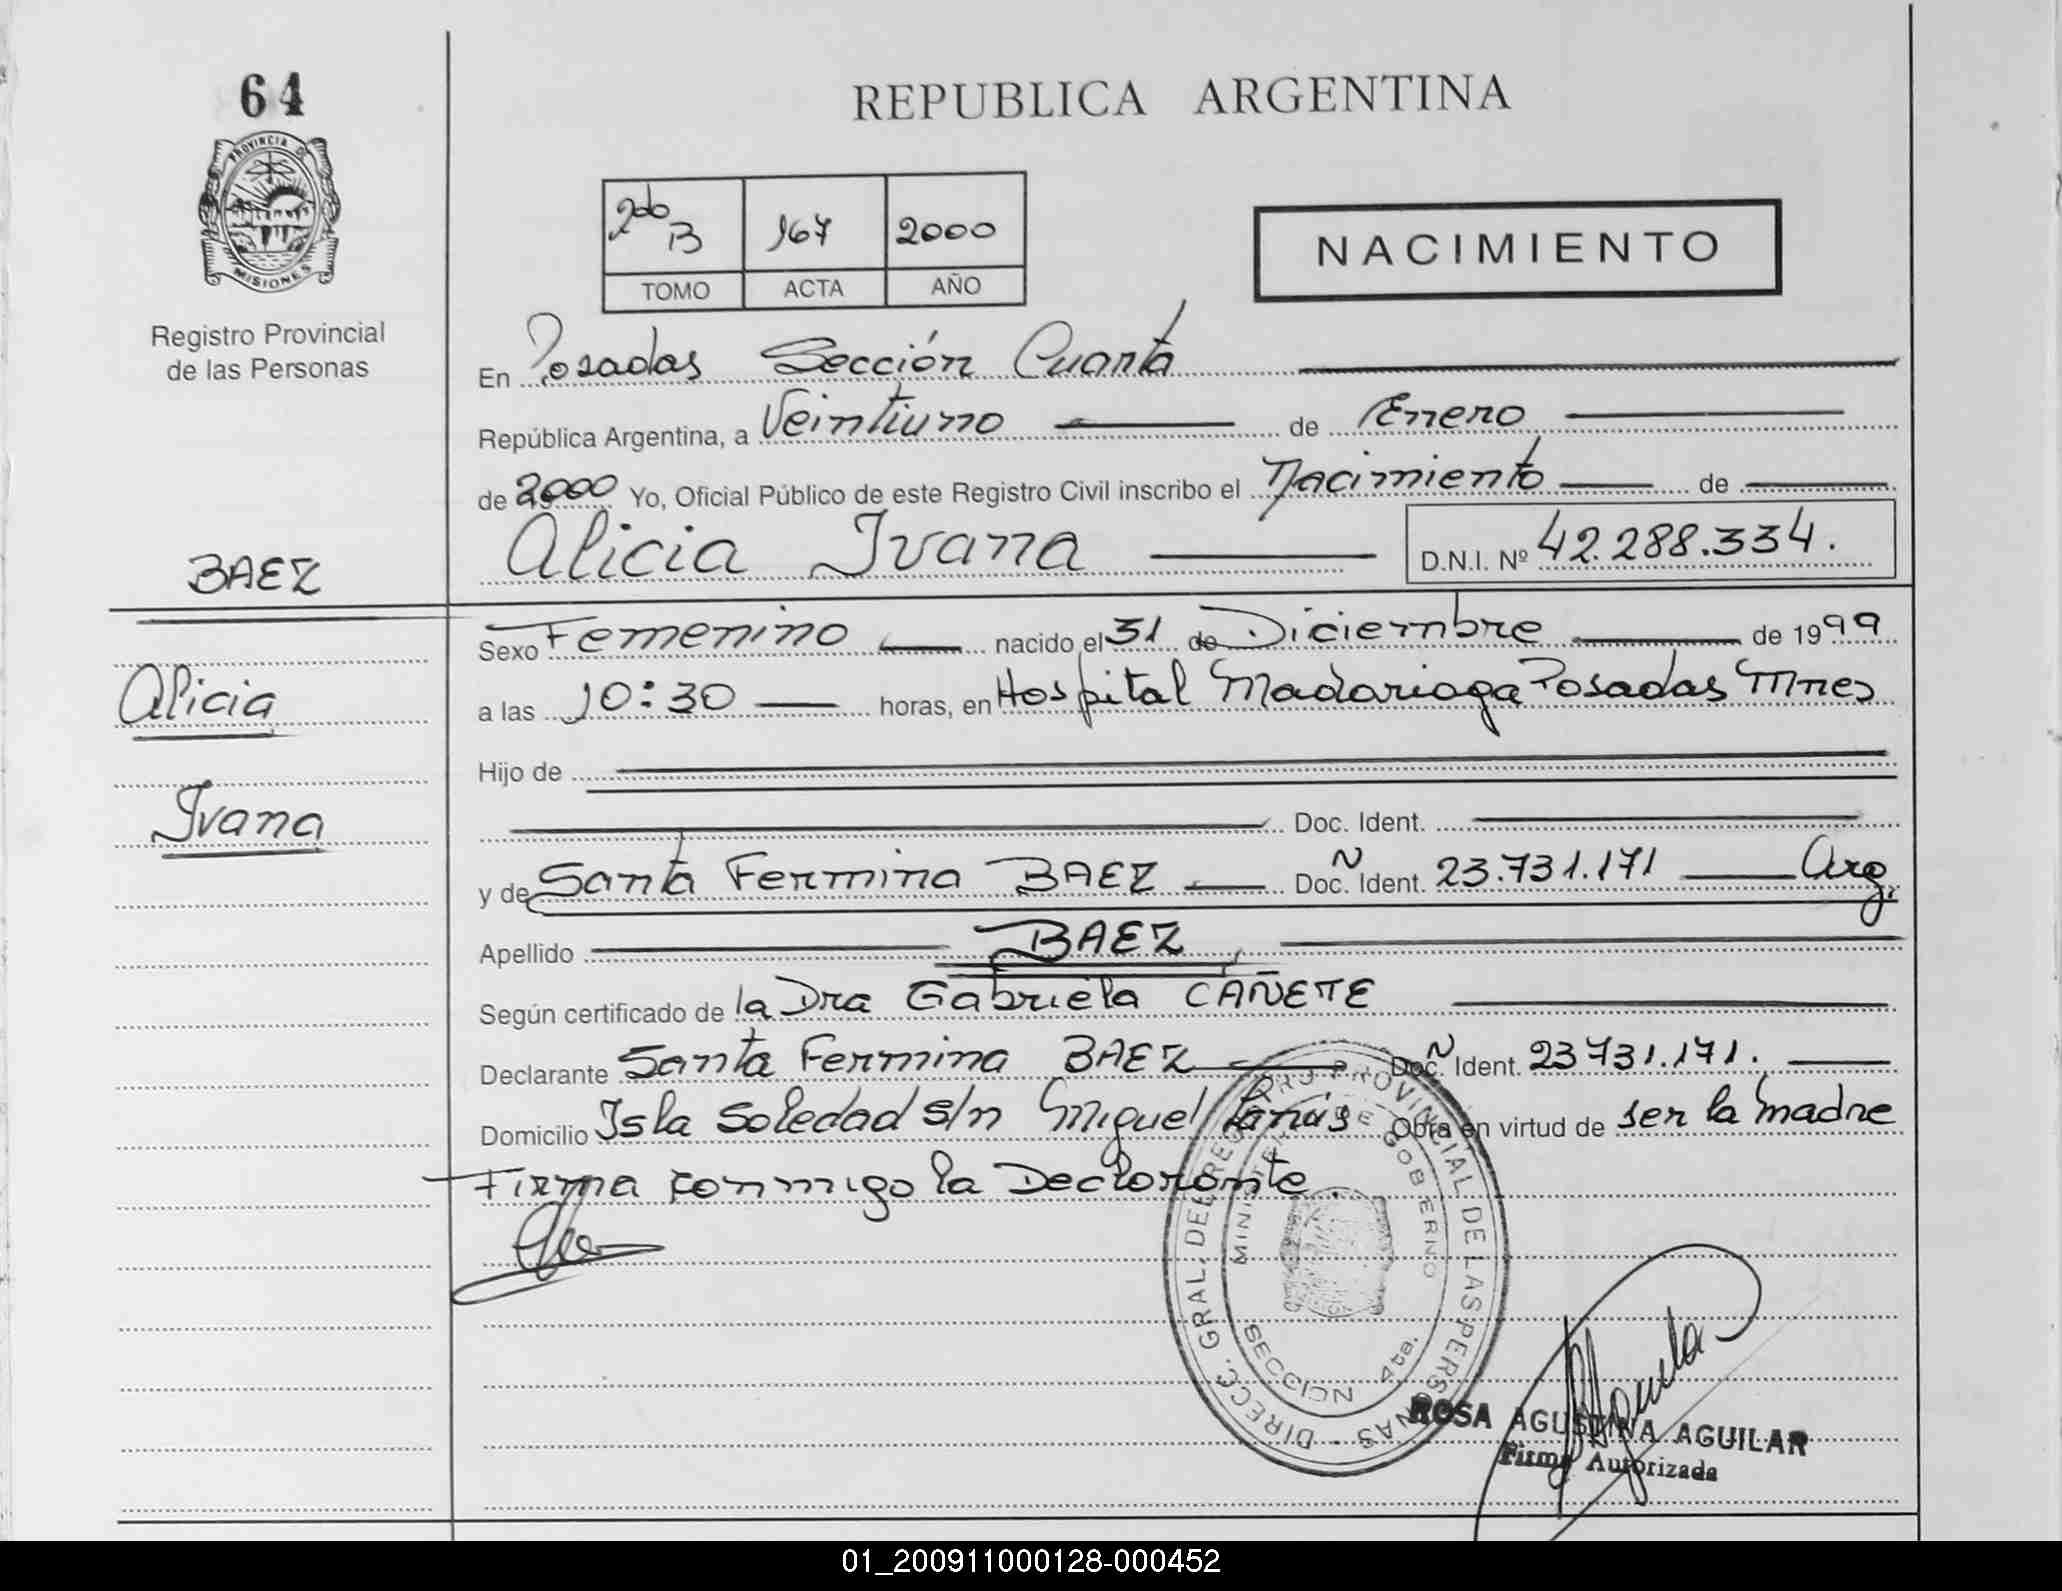 64
PROVINCIA DE
MISIONES
Registro Provincial
de las Personas
REPUBLICA ARGENTINA
2do B 167 2000
TOMO ACTA AÑO
NACIMIENTO
En Posadas Sección Cuarta
República Argentina, a Veintiuno de Enero
de 2000 Yo, Oficial Público de este Registro Civil inscribo el Nacimiento de
Alicia Ivana D.N.I. Nº 42.288.334.
BAEZ
Alicia
Ivana
Sexo Femenino nacido el 31 de Diciembre de 1999
a las 10:30 horas, en Hospital Madariaga Posadas Mnes
Hijo de
Doc. Ident.
y de Santa Fermina BAEZ Doc. N Ident. 23.731.171 Arg.
Apellido BAEZ
Según certificado de la Dra Gabriela CAÑETE
Declarante Santa Fermina BAEZ Doc. N Ident. 23731.171.
Domicilio Isla Soledad s/n Miguel Lanús Obra en virtud de ser la Madre
Firma conmigo la Declarante.
DIRECC. GRAL. DEL REGISTRO PROVINCIAL DE LAS PERSONAS -
MINISTERIO DE GOBERNO
SECCION 4ta.
ROSA AGUSTINA AGUILAR
Firma Autorizada
01_200911000128-000452